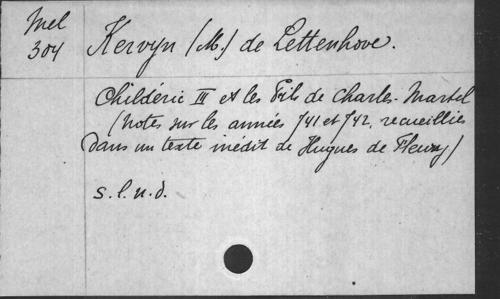 Mel
304
Kervyn (M.) de Lettenhove.
Childéric III et les Fils de Charles-Martel
(notes sur les années 741 et 742, recueillies
dans un texte inédit de Hugues de Fleury)
s.l.n.d.